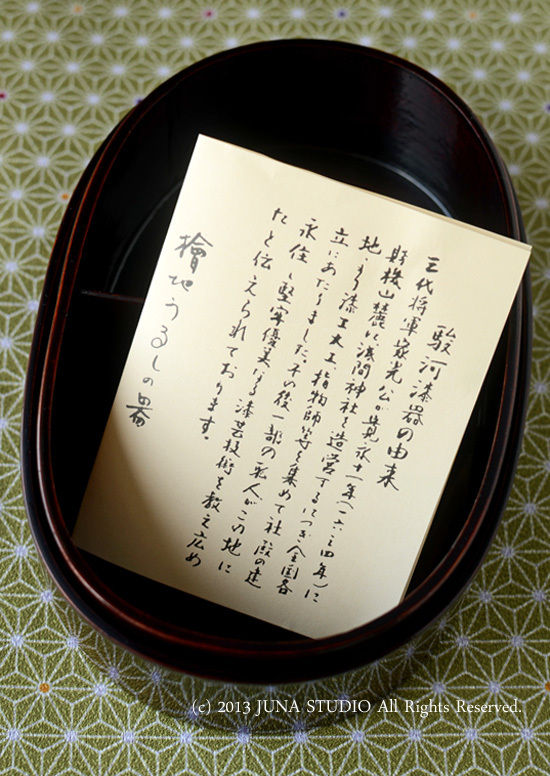 駿河漆器の由来
三代将軍家光公が寛永十一年(一六三四年)に
財機山麓に浅間神社を造営するにつき全国各
地より漆工大工指物師等を集めて社殿の建
立にあたりました。その後一部の职人がこの地に
永住し堅牢優美なる漆芸技術を教え広め
たと伝えられております。
檜地うるしの器
(c) 2013 JUNA STUDIO All Rights Reserved.